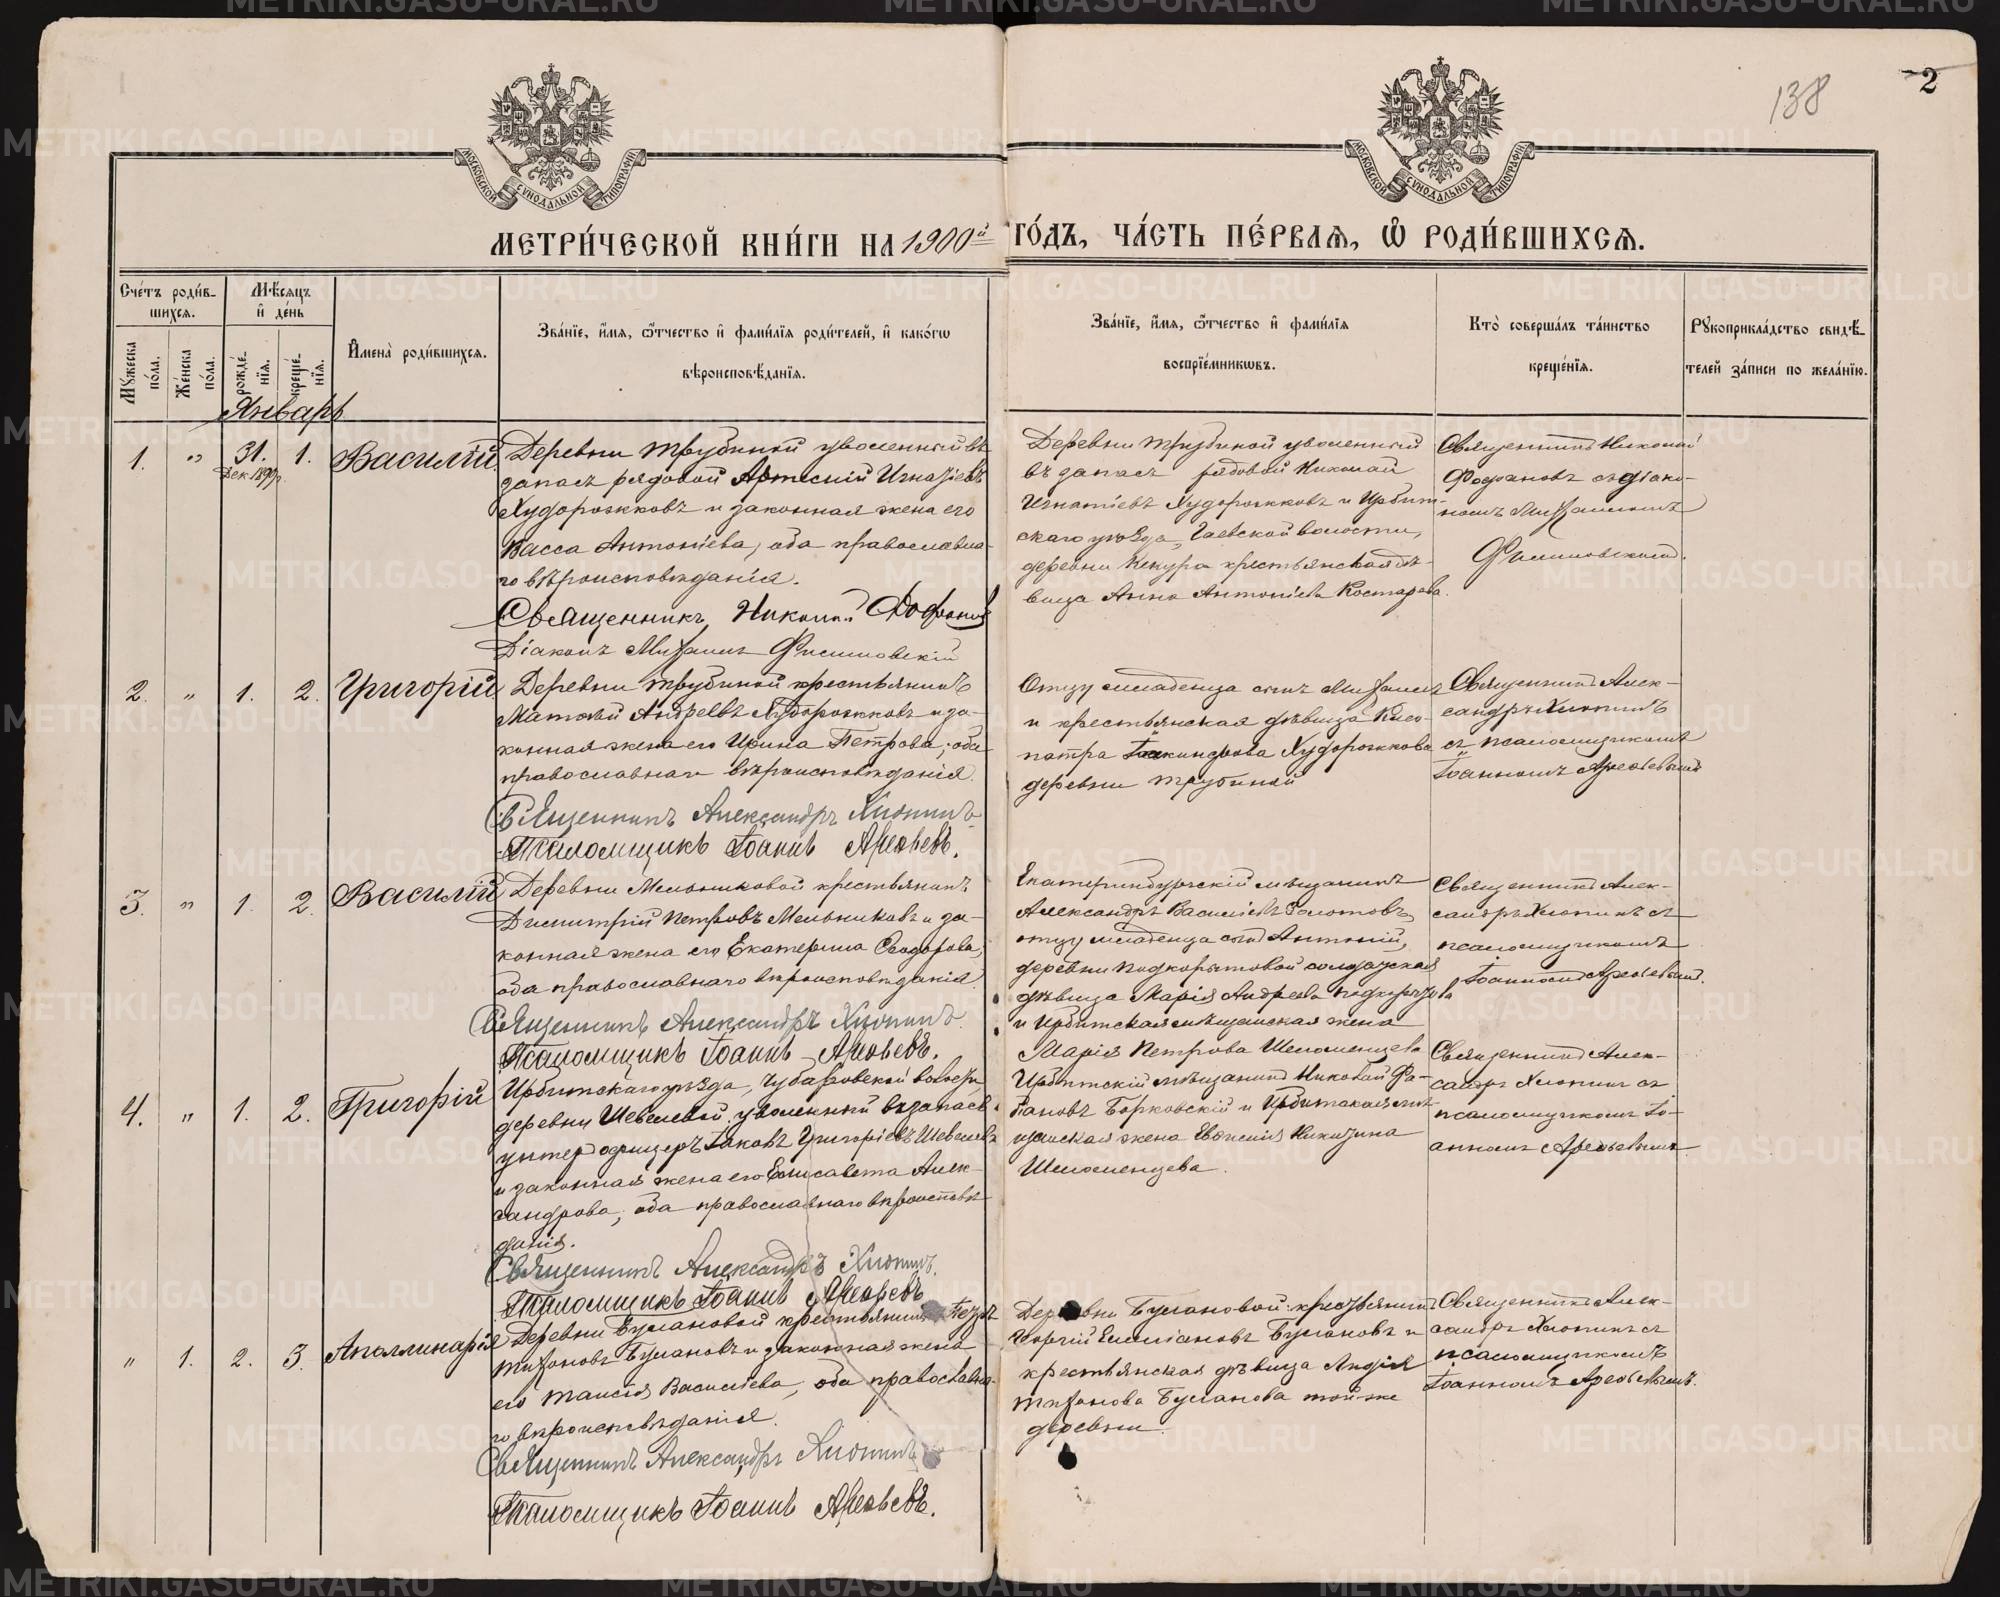 138
2
МОСКОВСКОЙ СѴНОДАЛЬНОЙ ТИПОГРАФІИ
МОСКОВСКОЙ СѴНОДАЛЬНОЙ ТИПОГРАФІИ
МЕТРИ́ЧЕСКОЙ КНИ́ГИ НА 1900й ГО́ДЪ, ЧА́СТЬ ПЕ́РВАѦ, Ѡ РОДИ́ВШИХСѦ.
Сче́тъ роди́в-
шихсѧ.
Мѣ́сяцъ
и҆ де́нь
Мꙋжеска по́ла.
Же́нска по́ла.
рожде́-нїѧ.
креще́-нїѧ.
И҆мена̀ роди́вшихсѧ.
Зва́нїе, и҆́мѧ, ѻ҆́тчество и҆ фами́лїѧ роди́телей, и҆ како́гѡ
вѣроисповѣ́данїѧ.
Зва́нїе, и҆́мѧ, ѻ҆́тчество и҆ фами́лїѧ
воспрїе́мникѡвъ.
Кто̀ соверша́лъ та́инство
креще́нїѧ.
Рꙋкоприкла́дство свидѣ́-
телей за́писи по жела́нїю.
Январь
1. „ 31. Дек. 1899 г. 1. Василій
Деревни Трубиной уволенный въ
запасъ рядовой Артемій Игнатіевъ
Худорожковъ и законная жена его
Васса Антоніева, оба православна-
го вѣроисповѣданія.
Священникъ Николай Фофановъ
Діаконъ Михаилъ Филиповскій
Деревни Трубиной уволенный
въ запасъ рядовой Николай
Игнатіевъ Худорожковъ и Ирбит-
скаго уѣзда, Гаевской волости,
деревни Кекура крестьянская дѣ-
вица Анна Антоніева Костарева.
Священникъ Николай
Фофановъ съ діако-
номъ Михаиломъ
Филиповскимъ.
2. „ 1. 2. Григорій
Деревни Трубиной крестьянинъ
Матѳей Андреевъ Худорожковъ и за-
конная жена его Ирина Петрова, оба
православнаго вѣроисповѣданія.
Священникъ Александръ Хионинъ
Псаломщикъ Іоаннъ Арефьевъ.
Отцу младенца сынъ Михаилъ
и крестьянская дѣвица Клео-
патра Іоакимова Худорожкова
деревни Трубиной
Священникъ Алек-
сандръ Хионинъ
съ псаломщикомъ
Іоанномъ Арефьевымъ
3. „ 1. 2. Василій
Деревни Мельниковой крестьянинъ
Димитрій Петровъ Мельниковъ и за-
конная жена его Екатерина Ѳеодорова,
оба православнаго вѣроисповѣданія.
Священникъ Александръ Хионинъ.
Псаломщикъ Іоаннъ Арефьевъ.
Екатеринбургскій мѣщанинъ
Александръ Василіевъ Золотовъ,
отцу младенца сынъ Антоній,
деревни Подкорытовой солдатская
дѣвица Марія Андреева Подкорытова
и Ирбитская мѣщанская жена
Марія Петрова Шеломенцева
Священникъ Алек-
сандръ Хионинъ съ
псаломщикомъ
Іоанномъ Арефьевымъ.
4. „ 1. 2. Григорій
Ирбитскаго уѣзда, Чубаровской волости,
деревни Шевелевой, уволенный въ запасъ
унтеръ офицеръ Іаковъ Григоріевъ Шевелевъ
и законная жена его Елисавета Алек-
сандрова, оба православнаго вѣроисповѣ-
данія.
Священникъ Александръ Хионинъ.
Псаломщикъ Іоаннъ Арефьевъ
Ирбитскій мѣщанинъ Николай
Борковскій и Ирбитская мѣ-
щанская жена Евгенія Никитина
Шеломенцева.
Священникъ Алек-
сандръ Хионинъ съ
псаломщикомъ Іо-
анномъ Арефьевымъ.
„ 1. 2. 3. Аполлинарія
Деревни Булановой крестьянинъ Петръ
Тихоновъ Булановъ и законная жена
его Таисія Василіева, оба православна-
го вѣроисповѣданія.
Священникъ Александръ Хионинъ
Псаломщикъ Іоаннъ Арефьевъ.
Деревни Булановой крестьянинъ
Георгій Емеліановъ Булановъ и
крестьянская дѣвица Лидія
Тихонова Буланова той же
деревни.
Священникъ Алек-
сандръ Хионинъ съ
псаломщикомъ
Іоанномъ Арефьевымъ.
METRIKI.GASO-URAL.RU